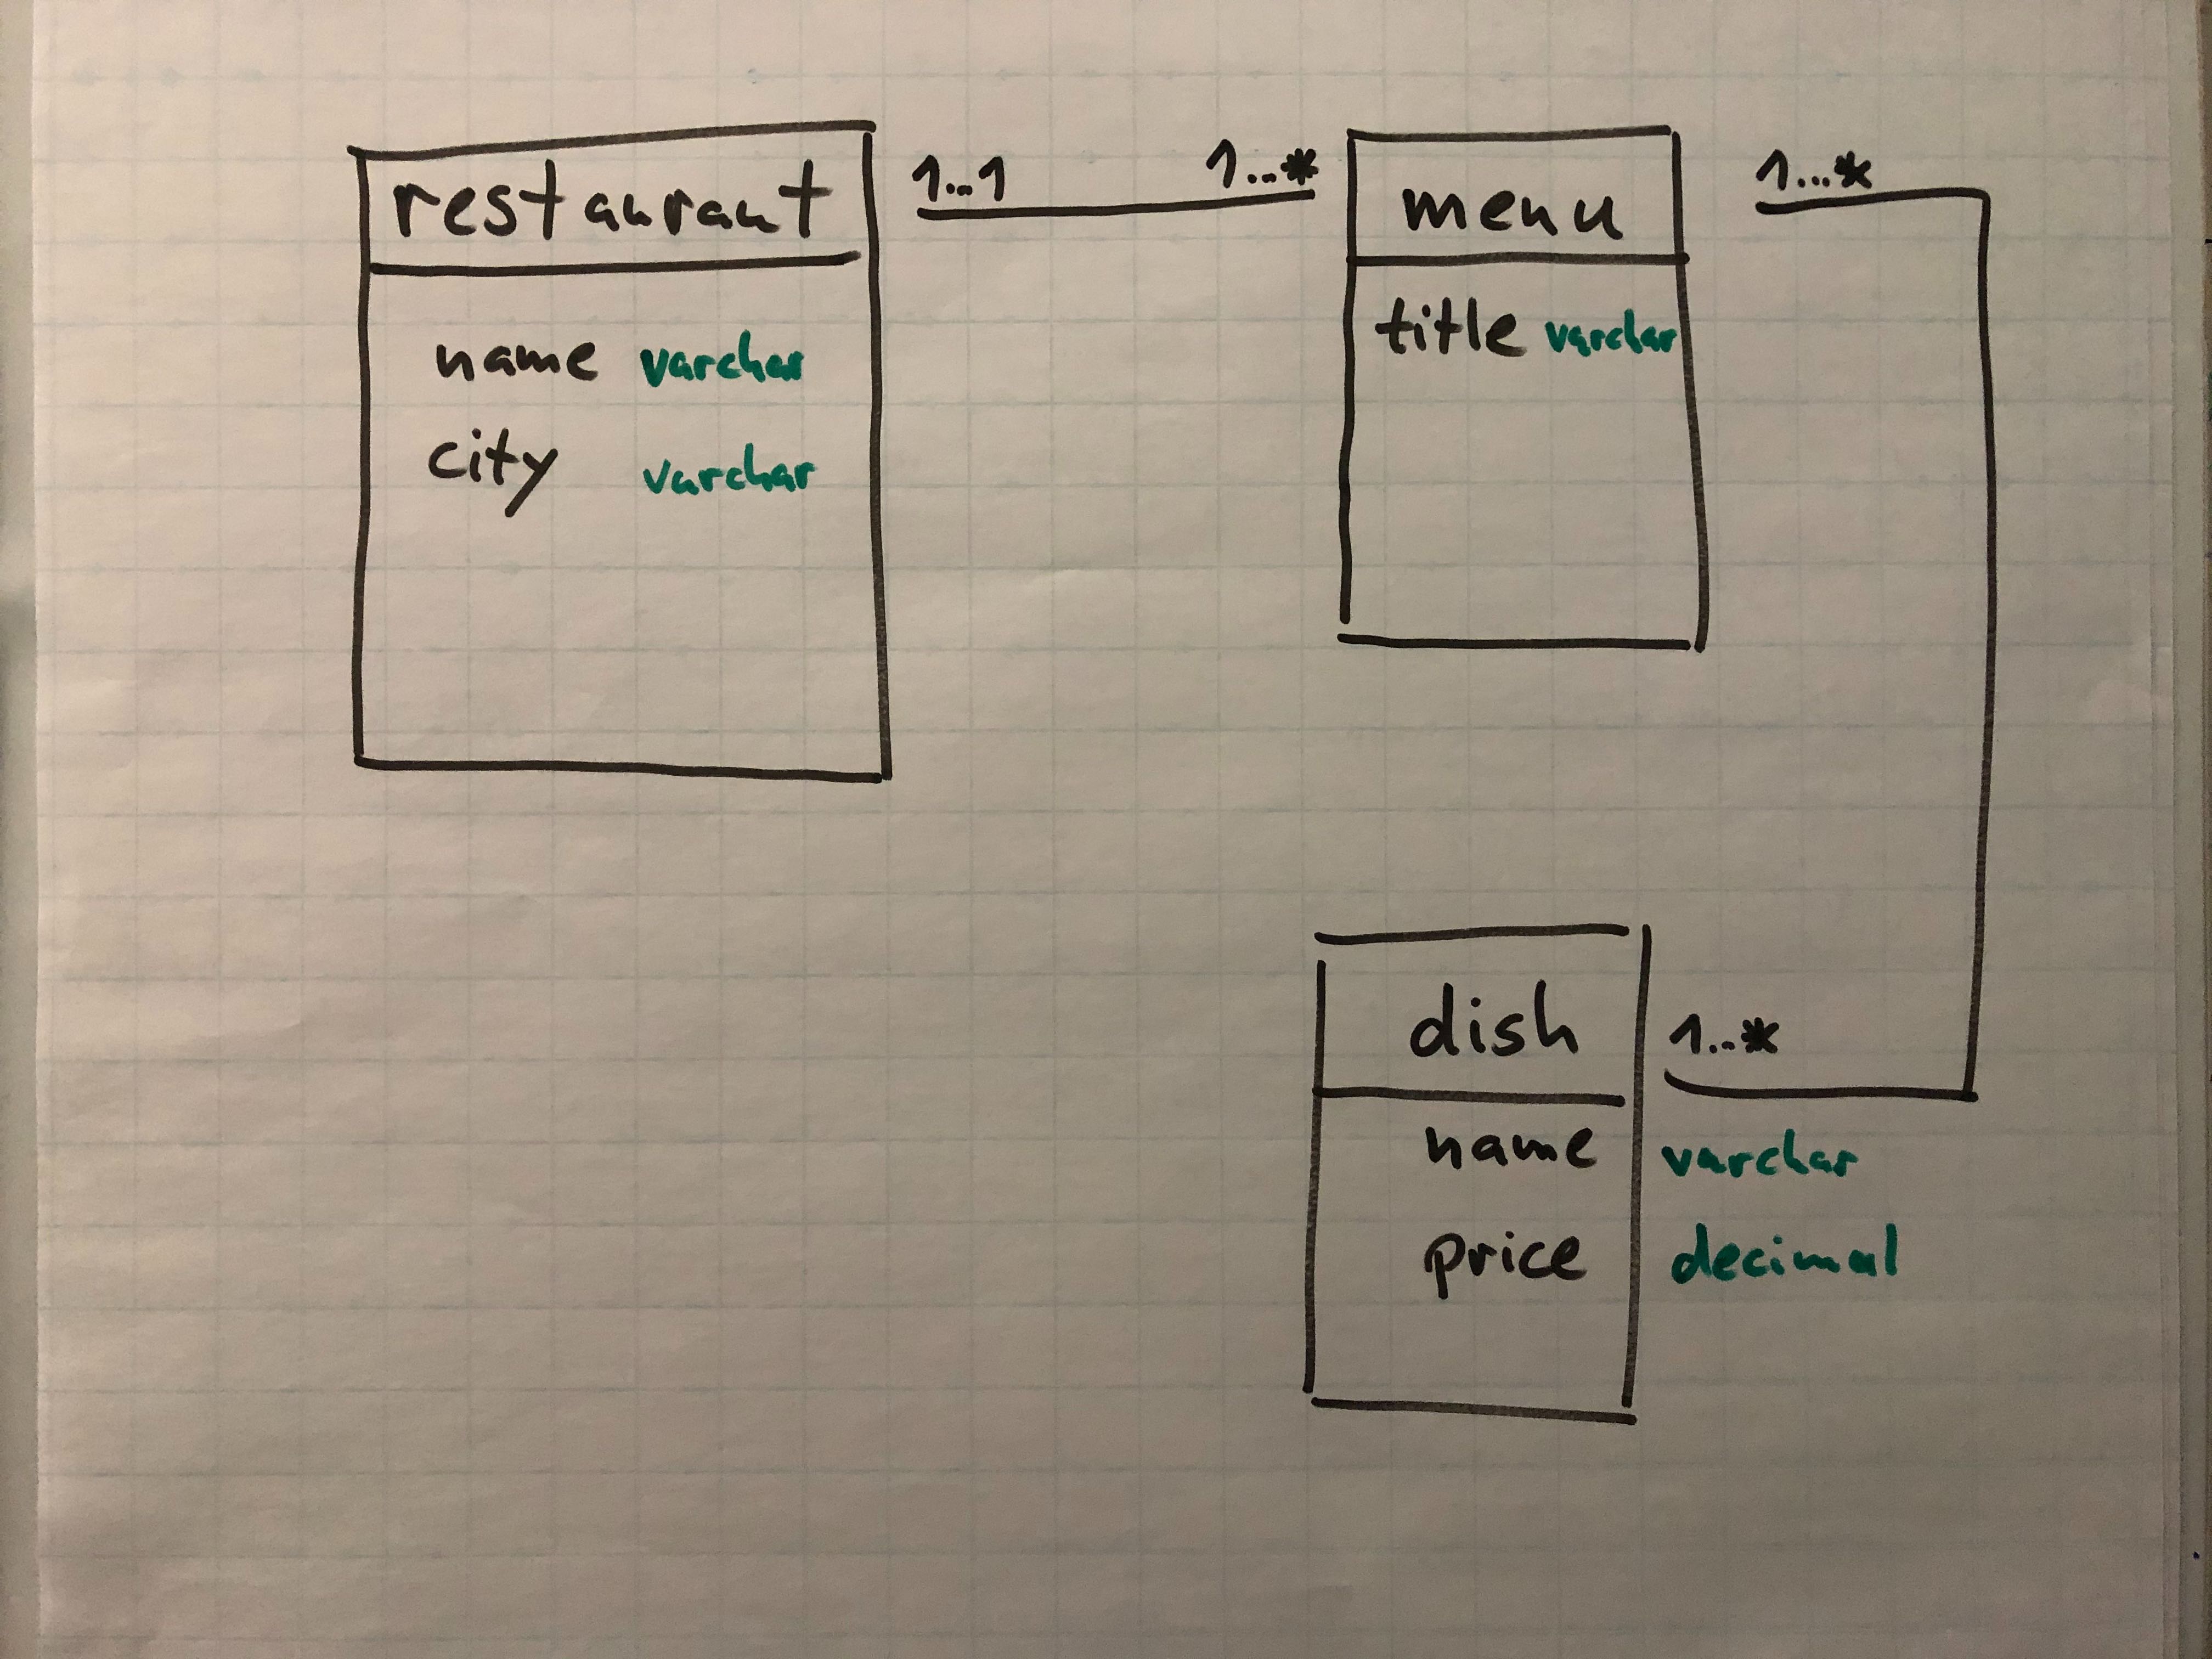 restaurant
1..1
1...*
name varchar
city varchar
menu
1...*
title varchar
dish
1..*
name varchar
price decimal